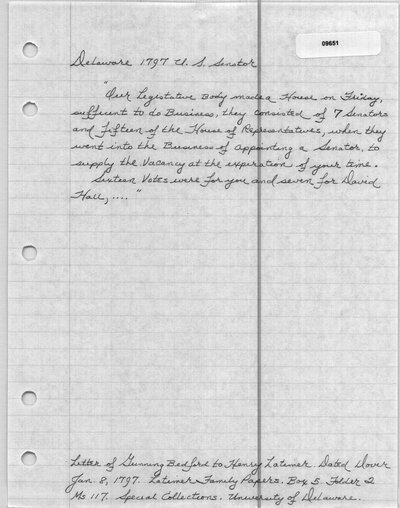 09651
Delaware 1797 U. S. Senator
"Our Legistative Body made a House on Friday,
sufficient to do Business, they consisted of 7 Senators
and fifteen of the House of Representatives, when they
went into the Business of appointing a Senator, to
supply the Vacancy at the expiration of your time.
Sixteen Votes were for you and seven for David
Hall, ...."
Letter of Gunning Bedford to Henry Latimer. Dated Dover
Jan. 8, 1797. Latimer Family Papers. Box 5. Folder 2
Ms 117. Special Collections. University of Delaware.